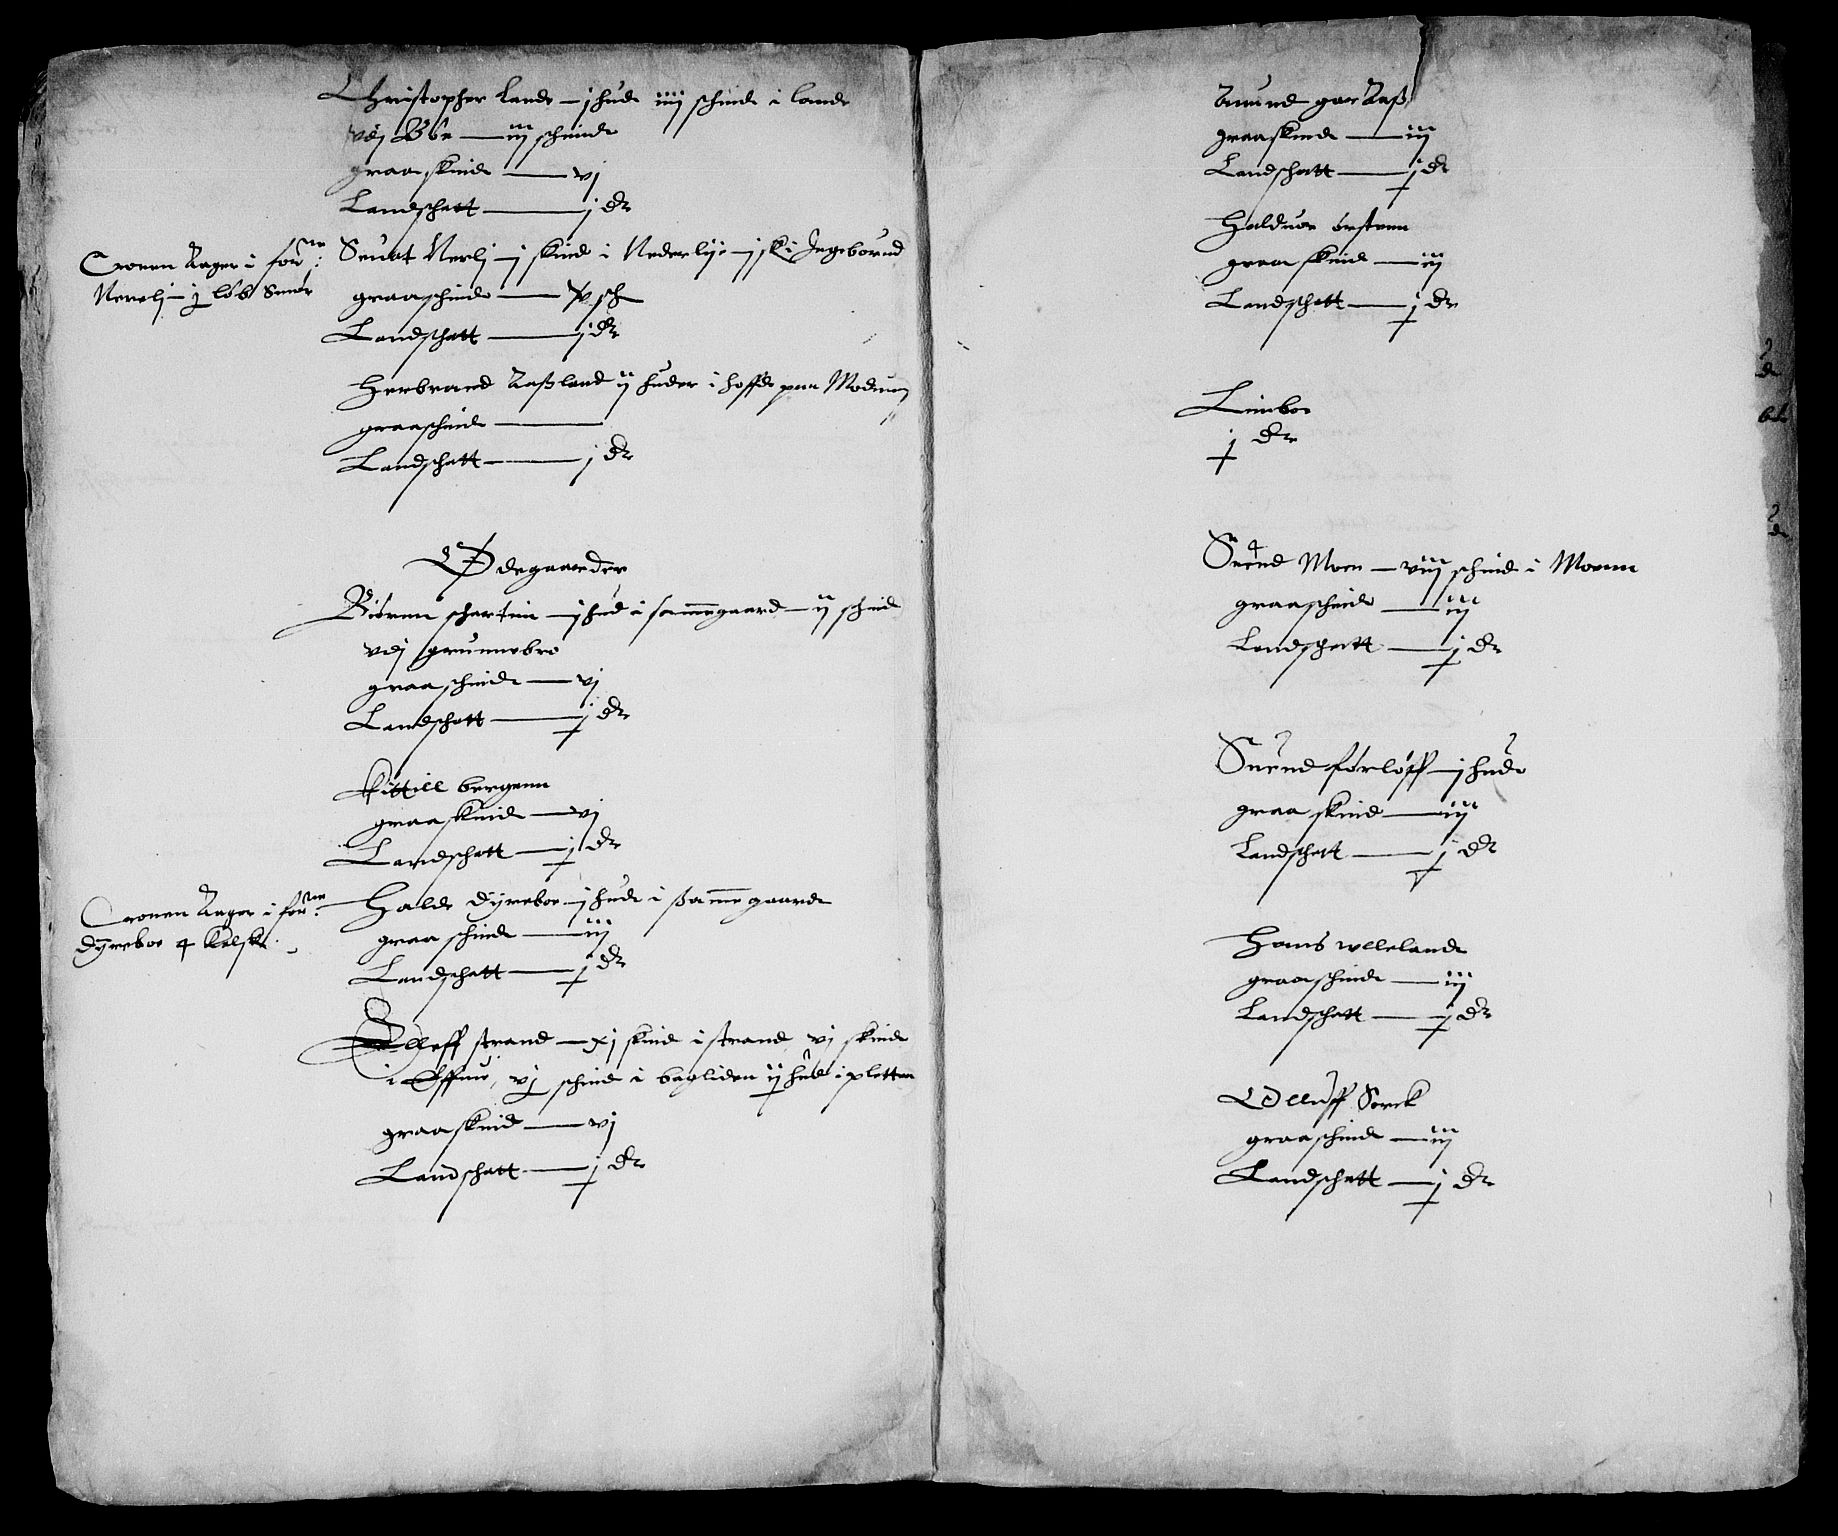 Christopher Lande — j hude iiij schinde i lande
vdj Böe — iij schinde
graaskinde — vj
Landschatt — j dr
Cronen Rager i forne:
Nerelj — j löb Smör
Senat Nerlj — j skind i Nederlije — j ski Ingeborud
graaschinde — x sch
Landschatt — j dr
Herbrand Raßland ij huder i hoffde paa Modum
graaschinde —
Landschatt — j dr
Ødegaarder
Biörnn schartim — j hud i sammegaard — ij schind
vdj grunnebro
graaschinde — vj
Landschatt — j dr
Kittill bergenn
graaskinde — vj
Landschatt — j dr
Cronen Rager i forne:
dyreboe 4 Kalsk:
Halde dyreboe — j hude i ßammegaarde
graaschinde — iij
Landschatt — j dr
Olleff strand — xj skind i strand vj skinde
i Effue, vj schind i bagliden ij hud i pletten
graaskind — vj
Landschatt — j dr
Amund gaeRaß
graaskinde — iij
Landschatt — j dr
Halduor örsteen
graaskinde — iij
Landschatt — j dr
Limboe
j dr
Suend Moen — viij schind i Moenn
graaschinde — iij
Landschatt — j dr
Suend förlöff — j hude
graaskind — iij
Landschatt — j dr
Hans wllelande
graaschinde — iij
Landschatt — j dr
Olluff Sorck
graaschinde — iij
Landschatt — j dr